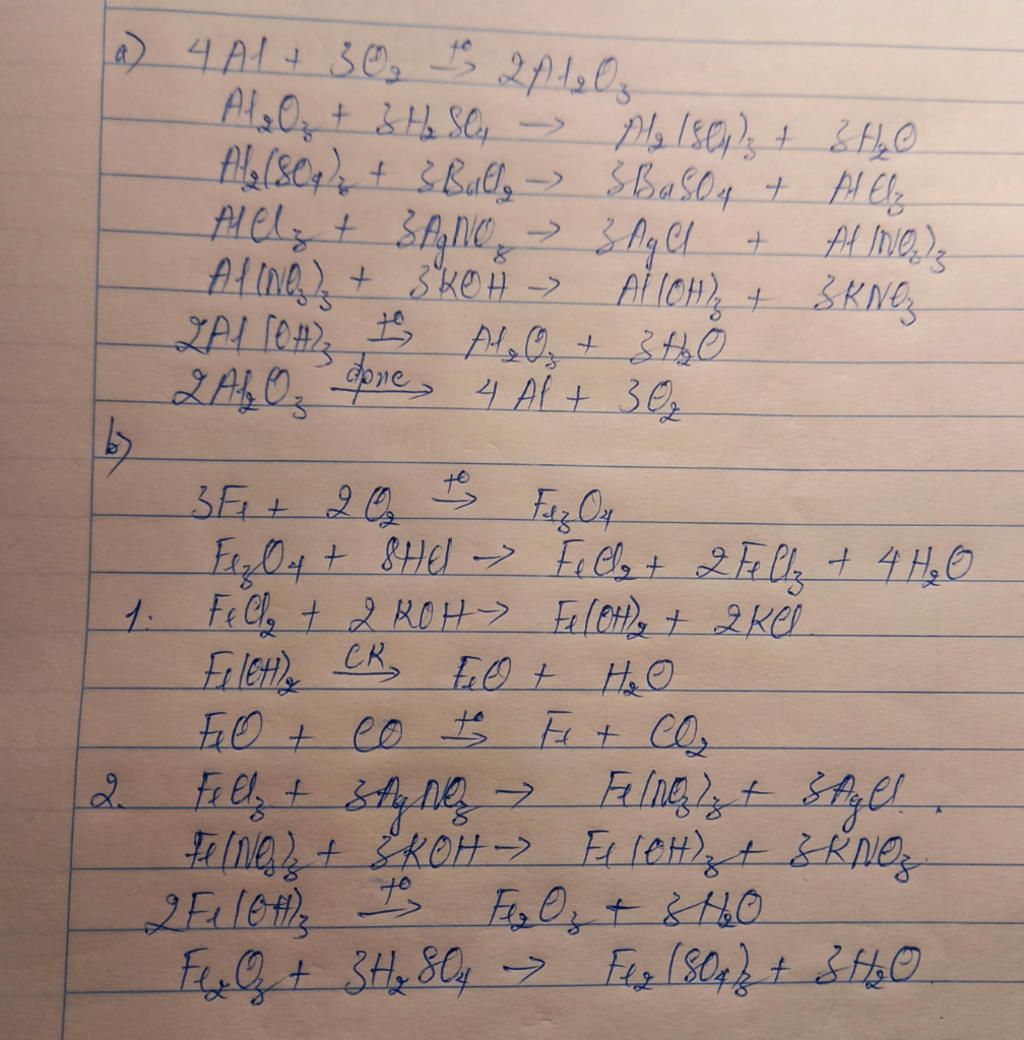 a) 4Al + 3O₂ →(t°) 2Al₂O₃
Al₂O₃ + 3H₂SO₄ → Al₂(SO₄)₃ + 3H₂O
Al₂(SO₄)₃ + 3BaCl₂ → 3BaSO₄ + AlCl₃
AlCl₃ + 3AgNO₃ → 3AgCl + Al(NO₃)₃
Al(NO₃)₃ + 3KOH → Al(OH)₃ + 3KNO₃
2Al(OH)₃ →(t°) Al₂O₃ + 3H₂O
2Al₂O₃ →(đpnc) 4Al + 3O₂
b)
3Fe + 2O₂ →(t°) Fe₃O₄
Fe₃O₄ + 8HCl → FeCl₂ + 2FeCl₃ + 4H₂O
1. FeCl₂ + 2KOH → Fe(OH)₂ + 2KCl
Fe(OH)₂ →(CK) FeO + H₂O
FeO + CO →(t°) Fe + CO₂
2. FeCl₃ + 3AgNO₃ → Fe(NO₃)₃ + 3AgCl.
Fe(NO₃)₃ + 3KOH → Fe(OH)₃ + 3KNO₃.
2Fe(OH)₃ →(t°) Fe₂O₃ + 3H₂O
Fe₂O₃ + 3H₂SO₄ → Fe₂(SO₄)₃ + 3H₂O